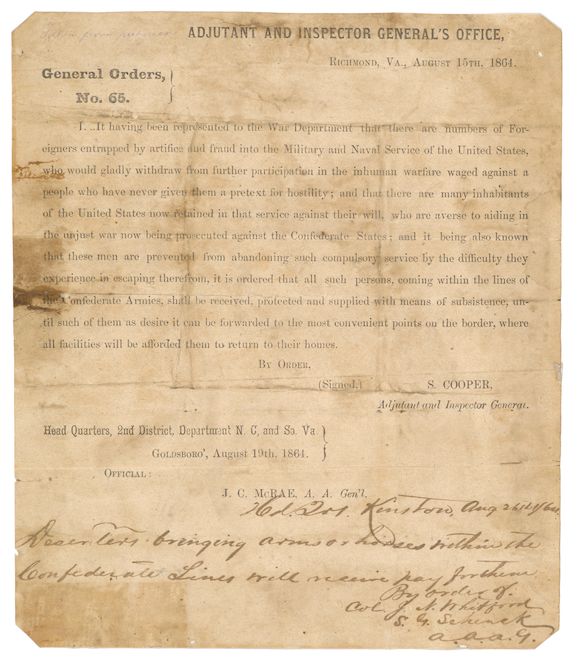 ADJUTANT AND INSPECTOR GENERAL'S OFFICE,
RICHMOND, VA., AUGUST 15TH, 1864.
General Orders,
No. 65.
I. It having been represented to the War Department that there are numbers of For-
eigners entrapped by artifice and fraud into the Military and Naval Service of the United States,
who would gladly withdraw from further participation in the inhuman warfare waged against a
people who have never given them a pretext for hostility; and that there are many inhabitants
of the United States now retained in that service against their will, who are averse to aiding in
the unjust war now being prosecuted against the Confederate States; and it being also known
that these men are prevented from abandoning such compulsory service by the difficulty they
experience in escaping therefrom, it is ordered that all such persons, coming within the lines of
the Confederate Armies, shall be received, protected and supplied with means of subsistence, un-
til such of them as desire it can be forwarded to the most convenient points on the border, where
all facilities will be afforded them to return to their homes.
BY ORDER,
(Signed,) S. COOPER,
Adjutant and Inspector General.
Head Quarters, 2nd District, Department N. C, and So. Va
GOLDSBORO', August 19th, 1864.
OFFICIAL:
J. C. McRAE, A. A. Gen'l.
Hd. Qrs. Kinston, Aug 26th/64
Deserters bringing arms or horses within the
Confederate Lines will receive pay for them
By order of
Col. J. N. Whitford
S. G. Schenck
a.a.a.G.